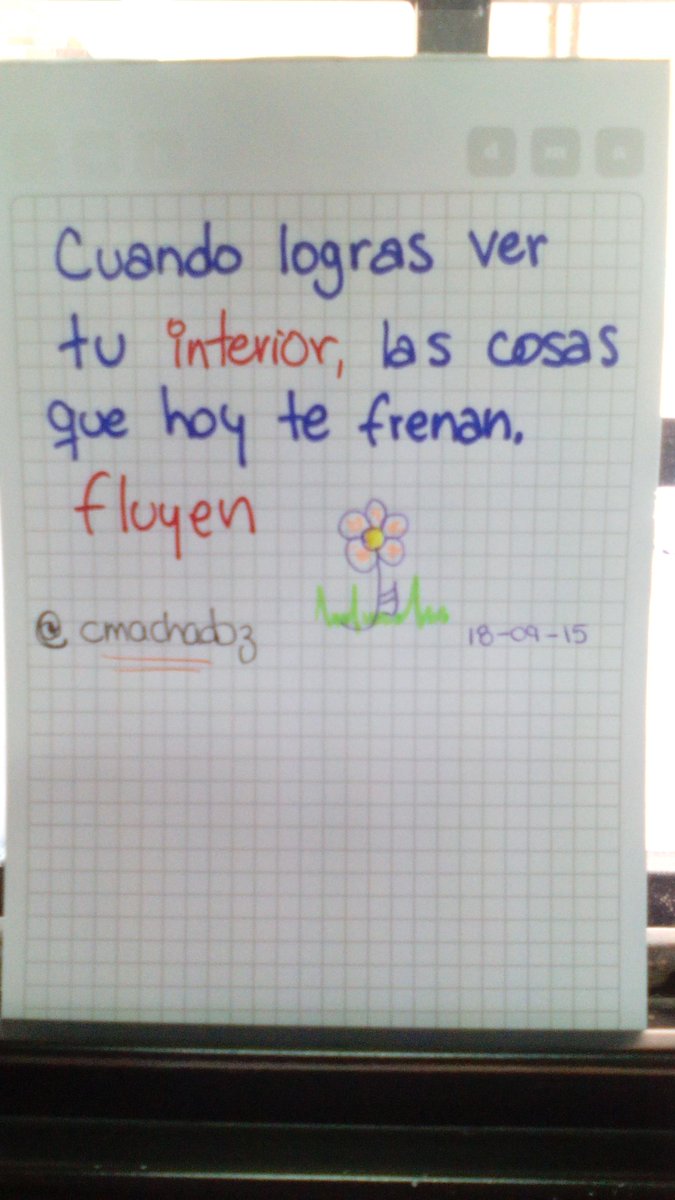 Cuando logras ver
tu interior, las cosas
que hoy te frenan.
fluyen
@cmachadoz
18-09-15